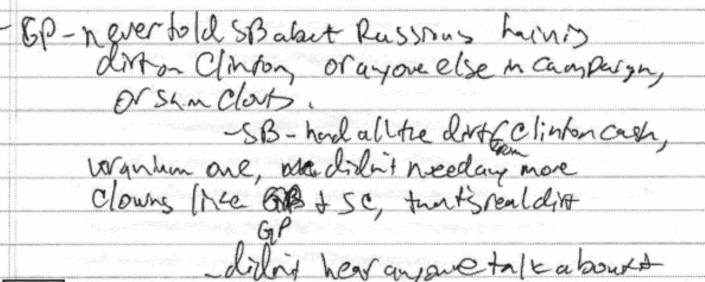 - GP - never told SB about Russians having
dirt on Clinton, or anyone else in campaign,
or Sam Clovis.
- SB - had all the dirt from Clinton cash,
uranium one, didn't need any more
clowns like GP + SC, that's real dirt
- didn't hear anyone talk about it